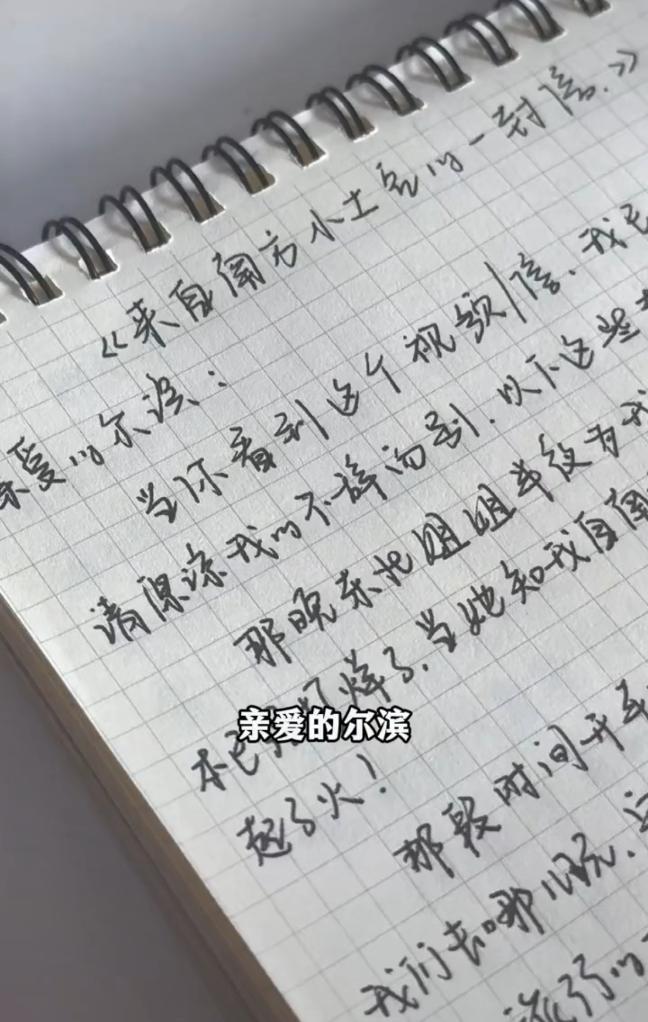 《来自南方小土豆的一封信.》
亲爱的尔滨：
当你看到这个视频/信、我已
请原谅我的不辞而别.以下这些
那晚东北姐姐半夜为我
本已打烊了.当她知我自南
起了火！
那段时间开车
我们去哪儿玩.
亲爱的尔滨